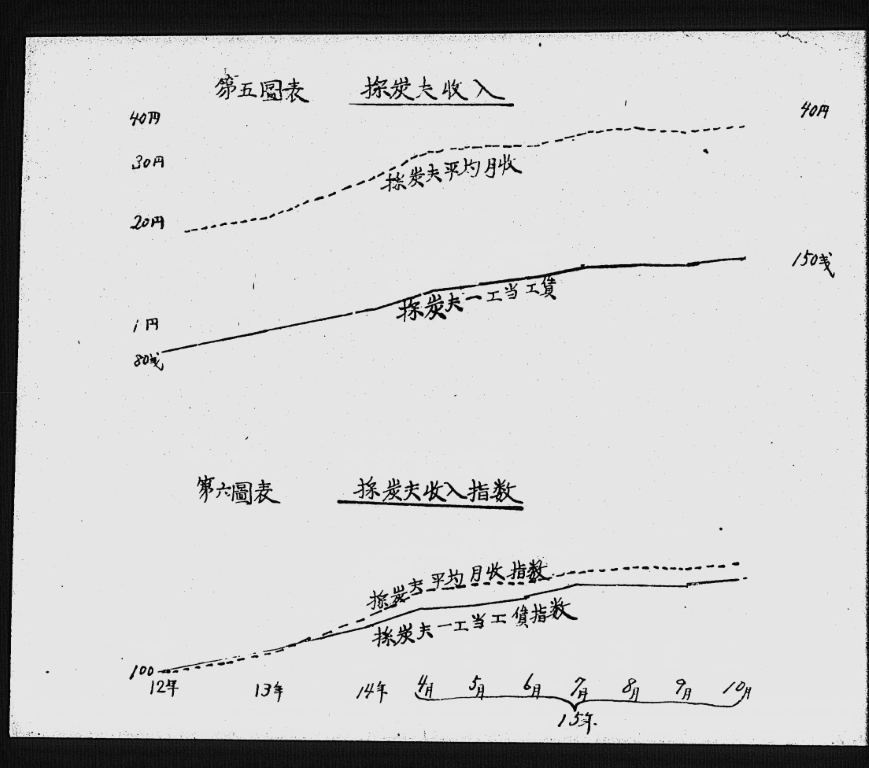 第五圖表 採炭夫收入
40円
40円
30円
採炭夫平均月收
20円
150戋
採炭夫一工当工賃
1円
80戋
第六圖表 採炭夫收入指数
採炭夫平均月收指数
採炭夫一工当工賃指数
100
12年 13年 14年 4月 5月 6月 7月 8月 9月 10月
15年